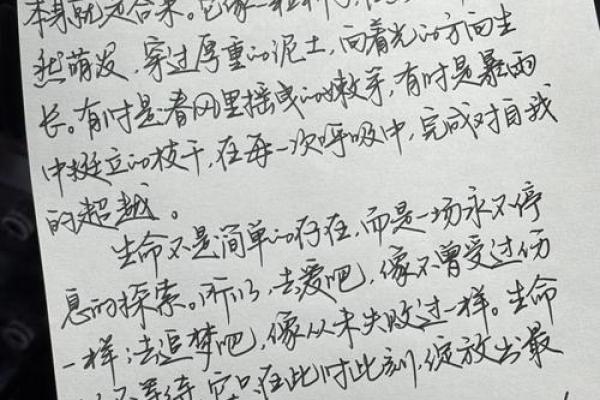 本身就是答案。它像一粒种子，在
然萌发，穿过厚重的泥土，向着光的方向生
长。有时是春风里摇曳的嫩芽，有时是暴雨
中挺立的枝干，在每一次呼吸中，完成对自我
的超越。
生命不是简单的存在，而是一场永不停
息的探索。所以，去爱吧，像不曾受过伤
一样；去追梦吧，像从未失败过一样。生命
不等待，它只在此时此刻，绽放出最